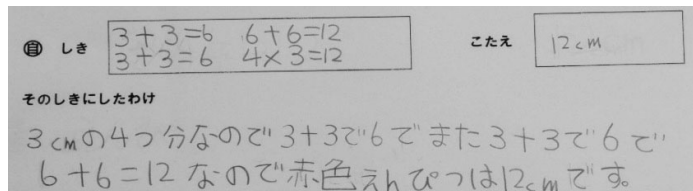 自 しき 3+3=6 6+6=12 こたえ 12cm
3+3=6 4×3=12
そのしきにしたわけ
3cmの4つ分なので3+3で6でまた3+3で6で
6+6=12なので赤色えんぴつは12cmです。